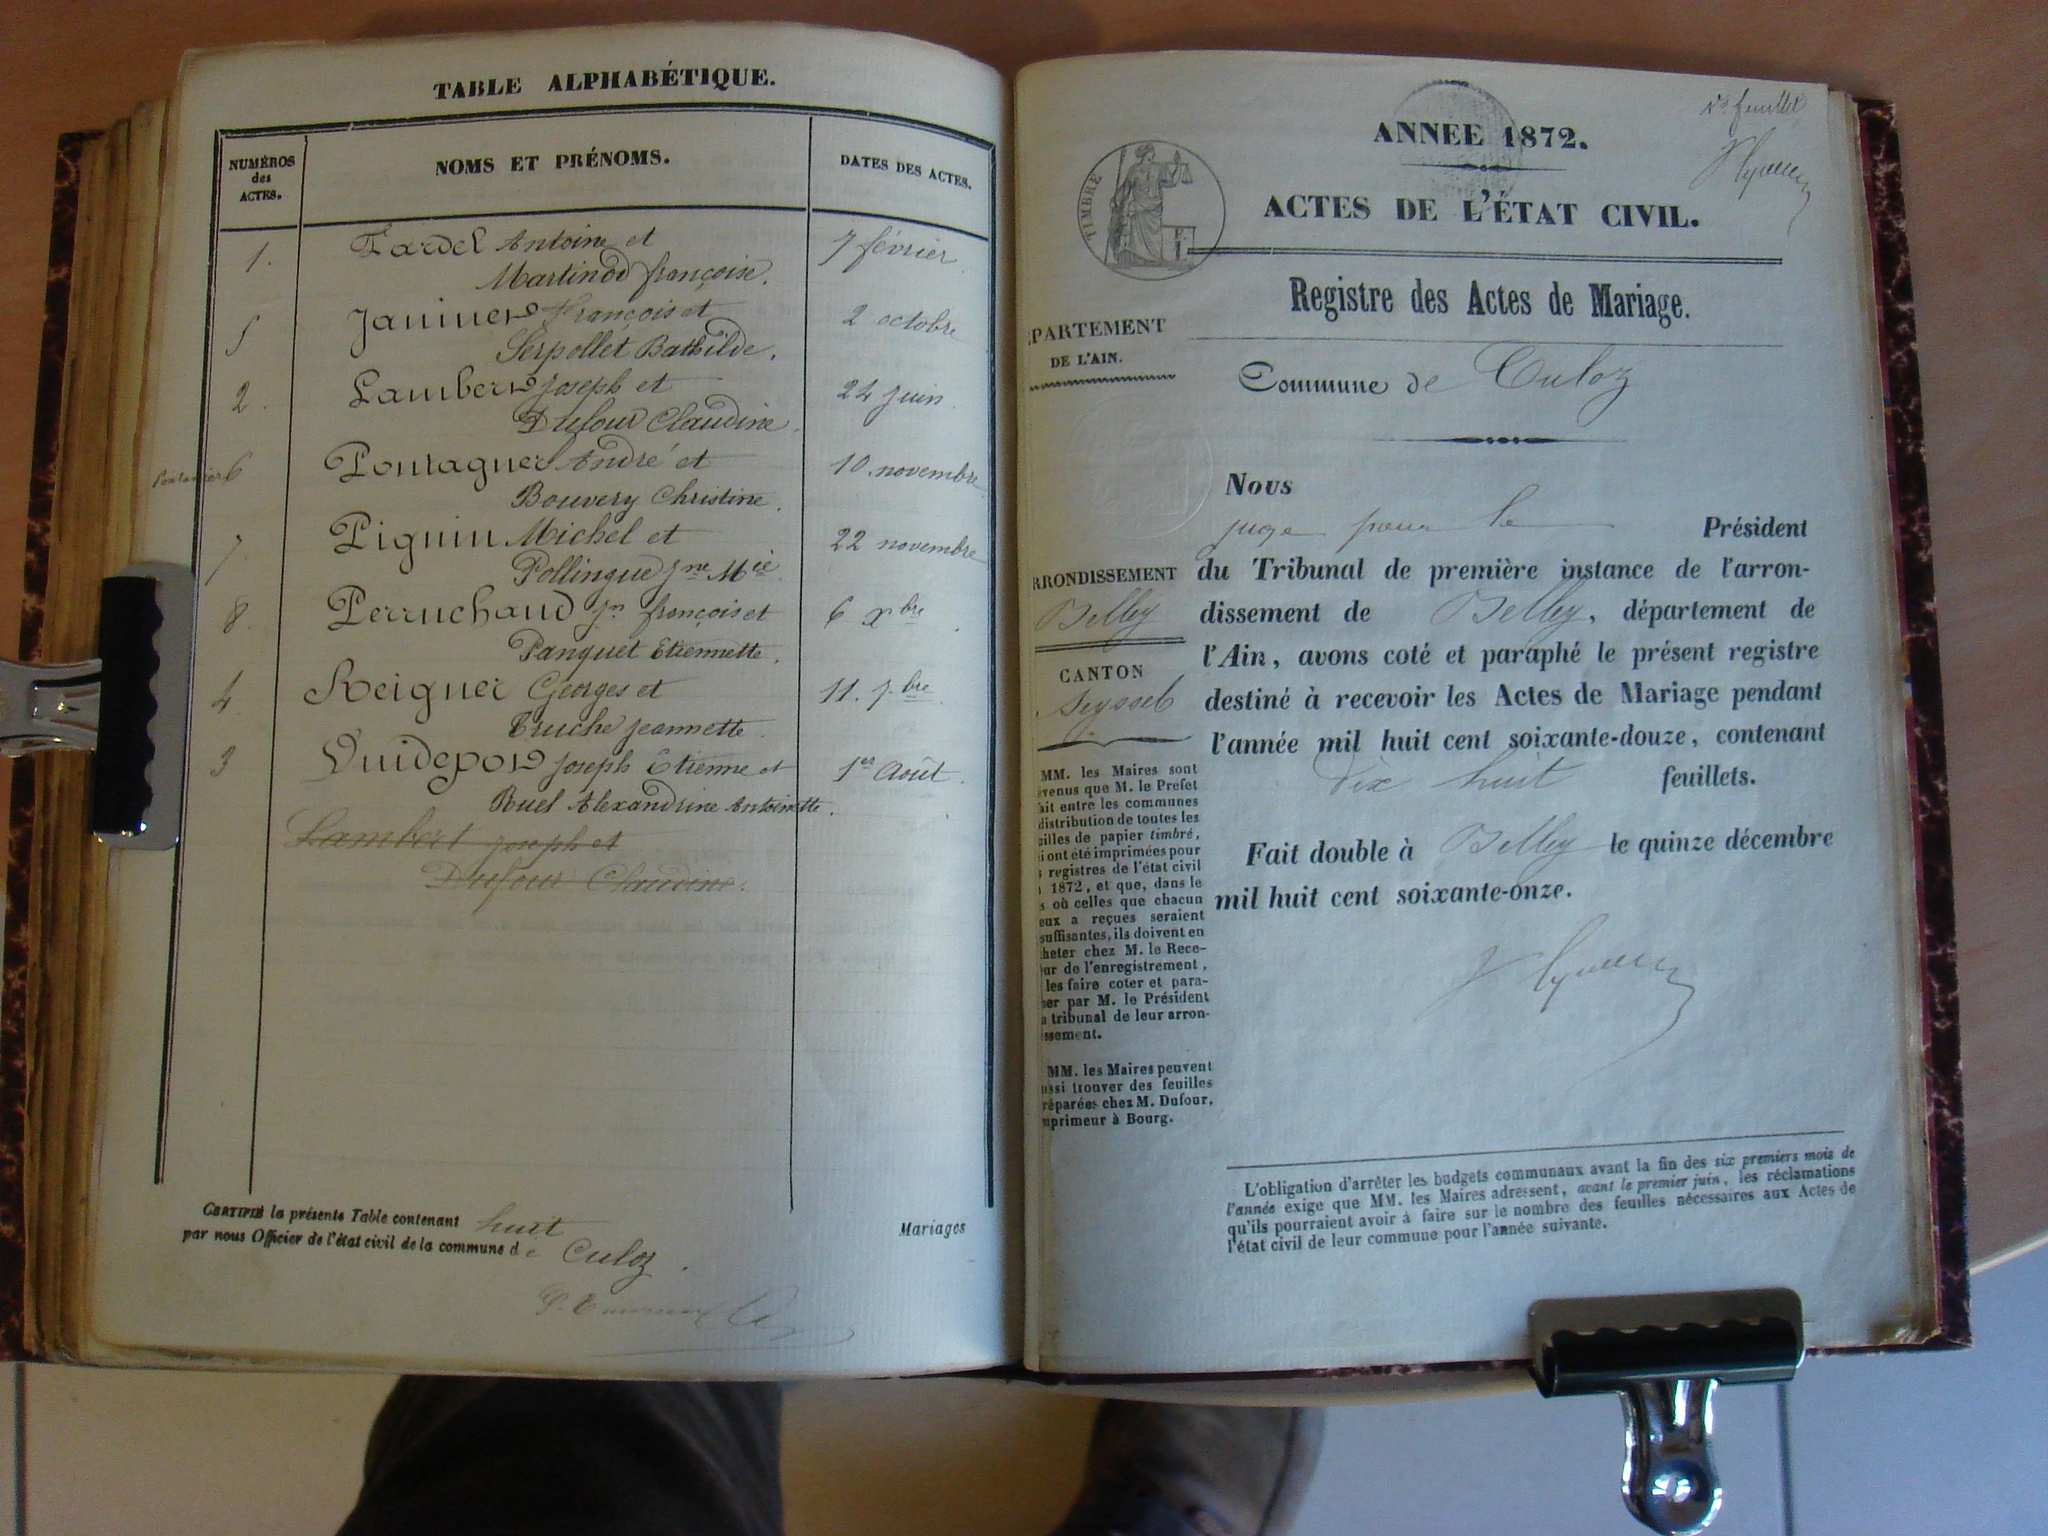 TABLE ALPHABÉTIQUE.
NUMÉROS
des
ACTES.
NOMS ET PRÉNOMS.
DATES DES ACTES.
1. Fardel Antoine et 7 février
Martinod françoise.
5 Janinet François et 2 octobre
Serpollet Bathilde.
2. Lambert Joseph et 24 juin
Dufour Claudine.
6 Pontagnet André et 10. novembre
Bouvery Christine.
7. Piguin Michel et 22 novembre
Pollingue jne Mie
8. Perruchaud jn françois et 6 xbre
Panquet Etiennette.
4 Reignier Georges et 11. 7bre
Truche jeannette.
3 Vuidepot Joseph Etienne et 1er Août.
Ruel Alexandrine Antoinette.
Lambert Joseph et
Dufour Claudine.
CERTIFIÉ la présente Table contenant huit Mariages
par nous Officier de l'état civil de la commune de Culoz.
1er feuillet
TIMBRE
ANNEE 1872.
ACTES DE L'ÉTAT CIVIL.
Registre des Actes de Mariage.
PARTEMENT
DE L'AIN.
Commune de Culoz
RRONDISSEMENT
Belley
CANTON
Seyssel
Nous
juge pour le Président
du Tribunal de première instance de l'arron-
dissement de Belley, département de
l'Ain, avons coté et paraphé le présent registre
destiné à recevoir les Actes de Mariage pendant
l'année mil huit cent soixante-douze, contenant
dix huit feuillets.
Fait double à Belley le quinze décembre
mil huit cent soixante-onze.
MM. les Maires sont
venus que M. le Préfet
ait entre les communes
distribution de toutes les
uilles de papier timbré,
i ont été imprimées pour
s registres de l'état civil
1872, et que, dans le
s où celles que chacun
eux a reçues seraient
suffisantes, ils doivent en
heter chez M. le Rece-
ur de l'enregistrement,
les faire coter et para-
her par M. le Président
u tribunal de leur arron-
ssement.
MM. les Maires peuvent
ussi trouver des feuilles
réparées chez M. Dufour,
mprimeur à Bourg.
L'obligation d'arrêter les budgets communaux avant la fin des six premiers mois de
l'année exige que MM. les Maires adressent, avant le premier juin, les réclamations
qu'ils pourraient avoir à faire sur le nombre des feuilles nécessaires aux Actes de
l'état civil de leur commune pour l'année suivante.